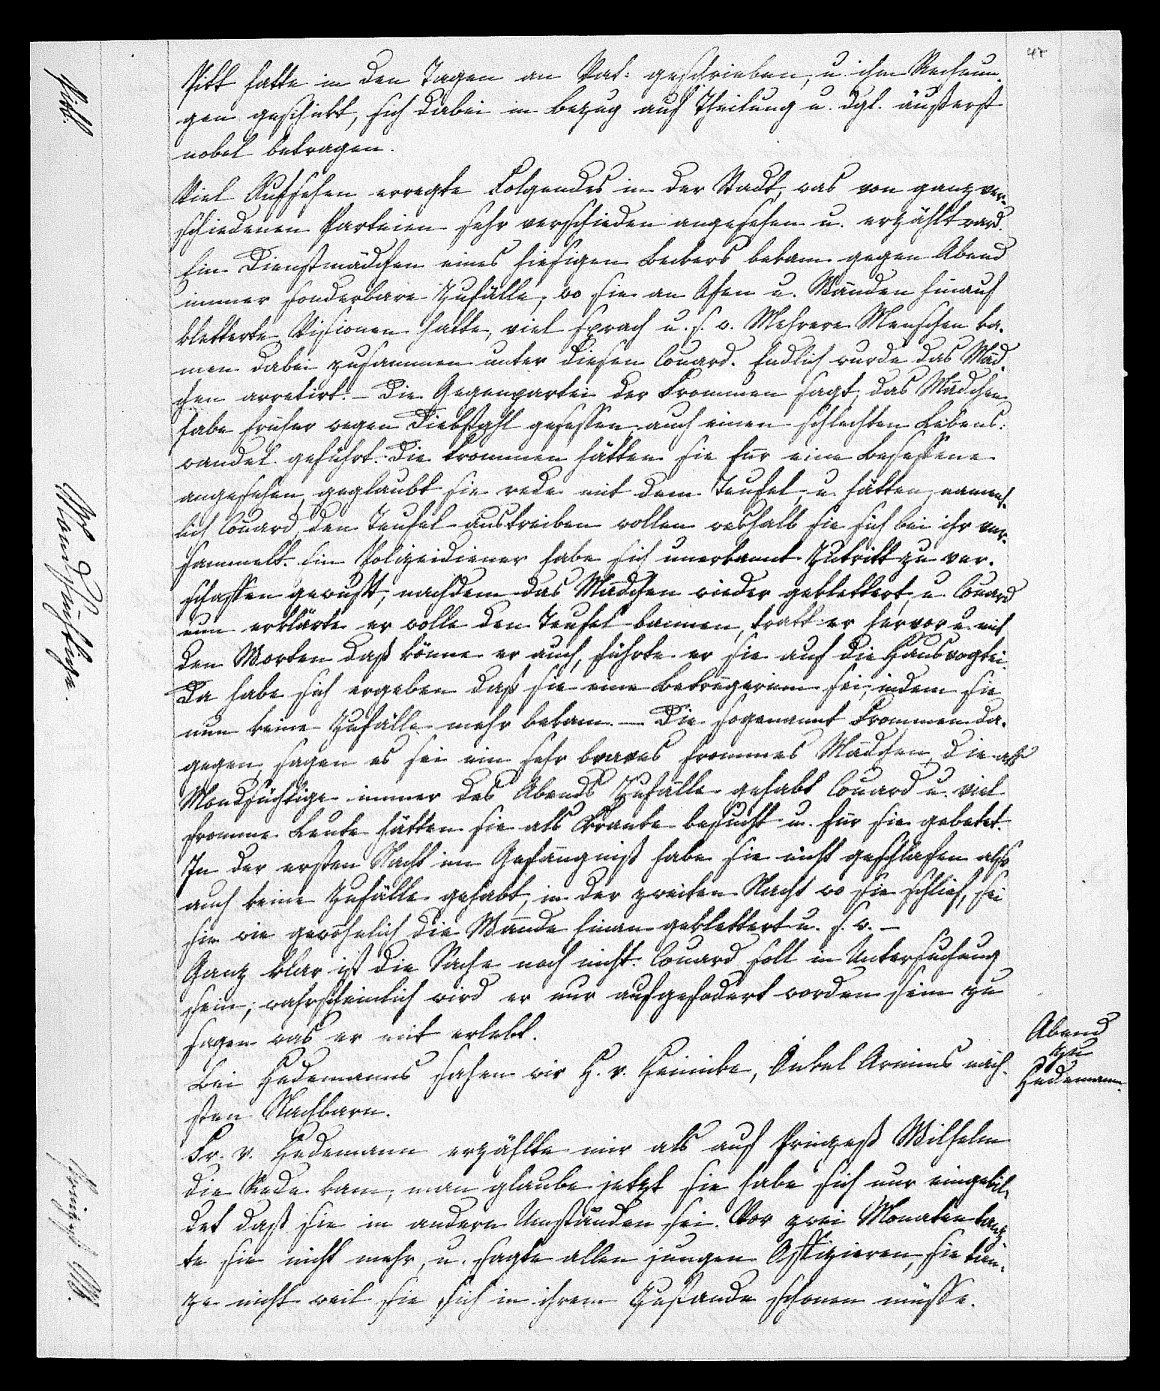 47
Pitt.
Pitt hatte in den Tagen an Vat: geschrieben, u. ihm Rechnun,
gen geschickt, sich dabei in bezug auf Theilung u. dgl. äußerst
nobel betragen.
Viel Aufsehen erregte Folgendes in der Stadt, was von ganz ver,
schiedenen Parteien sehr verschieden angesehen u. erzählt ward.
Ein Dienstmädchen eines hiesigen Beckers bekam gegen Abend
immer sonderbare Zufälle, wo sie an Ofen u. Wänden hinauf
kletterte, Visionen hatte, viel sprach u. s. w. Mehrere Menschen ka,
men dabei zusammen unter diesen Couard. Endlich wurde das Mäd,
chen arretirt. – Die Gegenpartei der Frommen sagt, das Mädchen
habe früher wegen Diebstahl gesessen, auch einen schlechten Lebens:
wandel geführt. Die Frommen hätten sie für eine Besessene
angesehen, geglaubt sie rede mit dem Teufel, u. hätten, nament,
lich Couard, den Teufel austreiben wollen weshalb sie sich bei ihr ver,
sammelt. Ein Polizeidiener habe sich unerkannt Zutritt zu ver,
schaffen gewußt, nachdem das Mädchen wieder geklettert, u. Couard
nun erklärte er wolle den Teufel bannen, tratt er hervor u. mit
den Worten daß könne er auch, führte er sie auf die Hausvogtei.
Da habe sich ergeben daß sie eine Betrügerinn sei, indem sie
nun keine Zufälle mehr bekam. – Die sogenannt Frommen da,
gegen, sagen es sei ein sehr braves frommes Mädchen, die als
Mondsüchtige immer des Abends Zufälle gehabt Couard u. viel
fromme Leute hätten sie als Kranke besucht u. für sie gebetet.
In der ersten Nacht im Gefängniß habe sie nicht geschlafen also
auch keine Zufälle gehabt, in der zweiten Nacht wo sie schlief, sei
sie wie gewöhnlich die Wände hinan geklettert u. s. w. –
Ganz klar ist die Sache noch nicht. Couard soll in Untersuchung
sein, wahrscheinlich wird er nur aufgefodert worden sein zu
sagen was er mit erlebt.
Bei Hedemanns sahen wir H. v. Heinicke, Onkel Armins näch,
sten Nachbarn.
Fr. v. Hedemann erzählte mir als auf Prinzeß Wilhelm
die Rede kam, man glaube jetzt sie habe sich nur eingebil,
det daß sie in andern Umständen sei. Vor zwei Monaten tanz,
te sie nicht mehr, u. sagte allen jungen Offizieren, sie tan,
ze nicht weil sie sich in ihrem Zustande schonen müsse.
Mondsüchtige.
Abend
zu
Hedemann.
Prinzeß W.